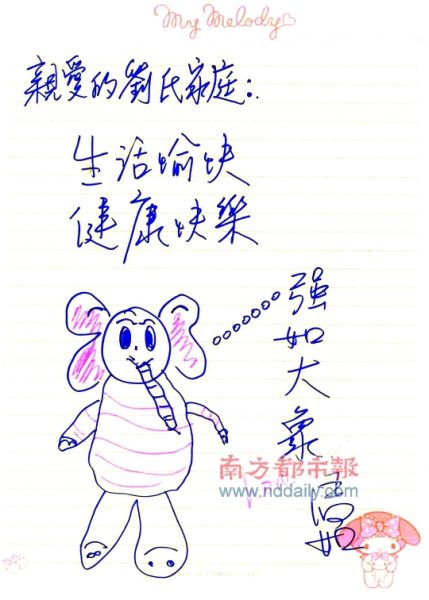 My Melody
親愛的劉氏家庭:
生活愉快
健康快樂
强如大象
南方都市報
www.nddaily.com